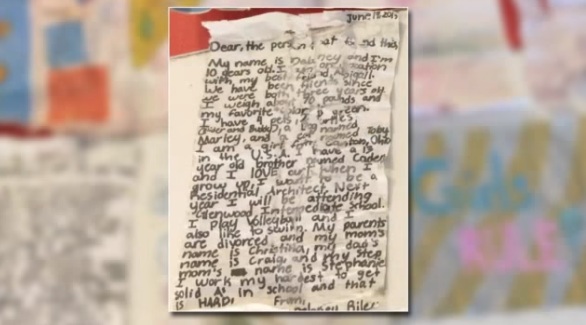 June 18 2015
Dear, the person that found this,
My name is Delaney and I'm
10 years old. I am on vacation
with my best friend Abigail.
We have been friends since
we were both three years old.
I weigh about 70 pounds and
my favorite color is
I have 4 pets turtles,
and Bubba, a dog named
Marley, and a cat named Toby
I am a girl from Canton, Ohio
in the U.S.A. I have a 13
year old brother named Caden
and I LOVE art when I
grow up, I want to be a
Presidential Architect. Next
year I will be attending
Glenwood Intermediate School.
I play Volleyball and I
also like to swim. My parents
are divorced and my mom's
name is Christina, my dad's
name is Craig, and my step
mom's name is Stephanie
I work my hardest to get
solid A's in school and that
is HARD!
From,
Delaney Riler
Girls
RULE